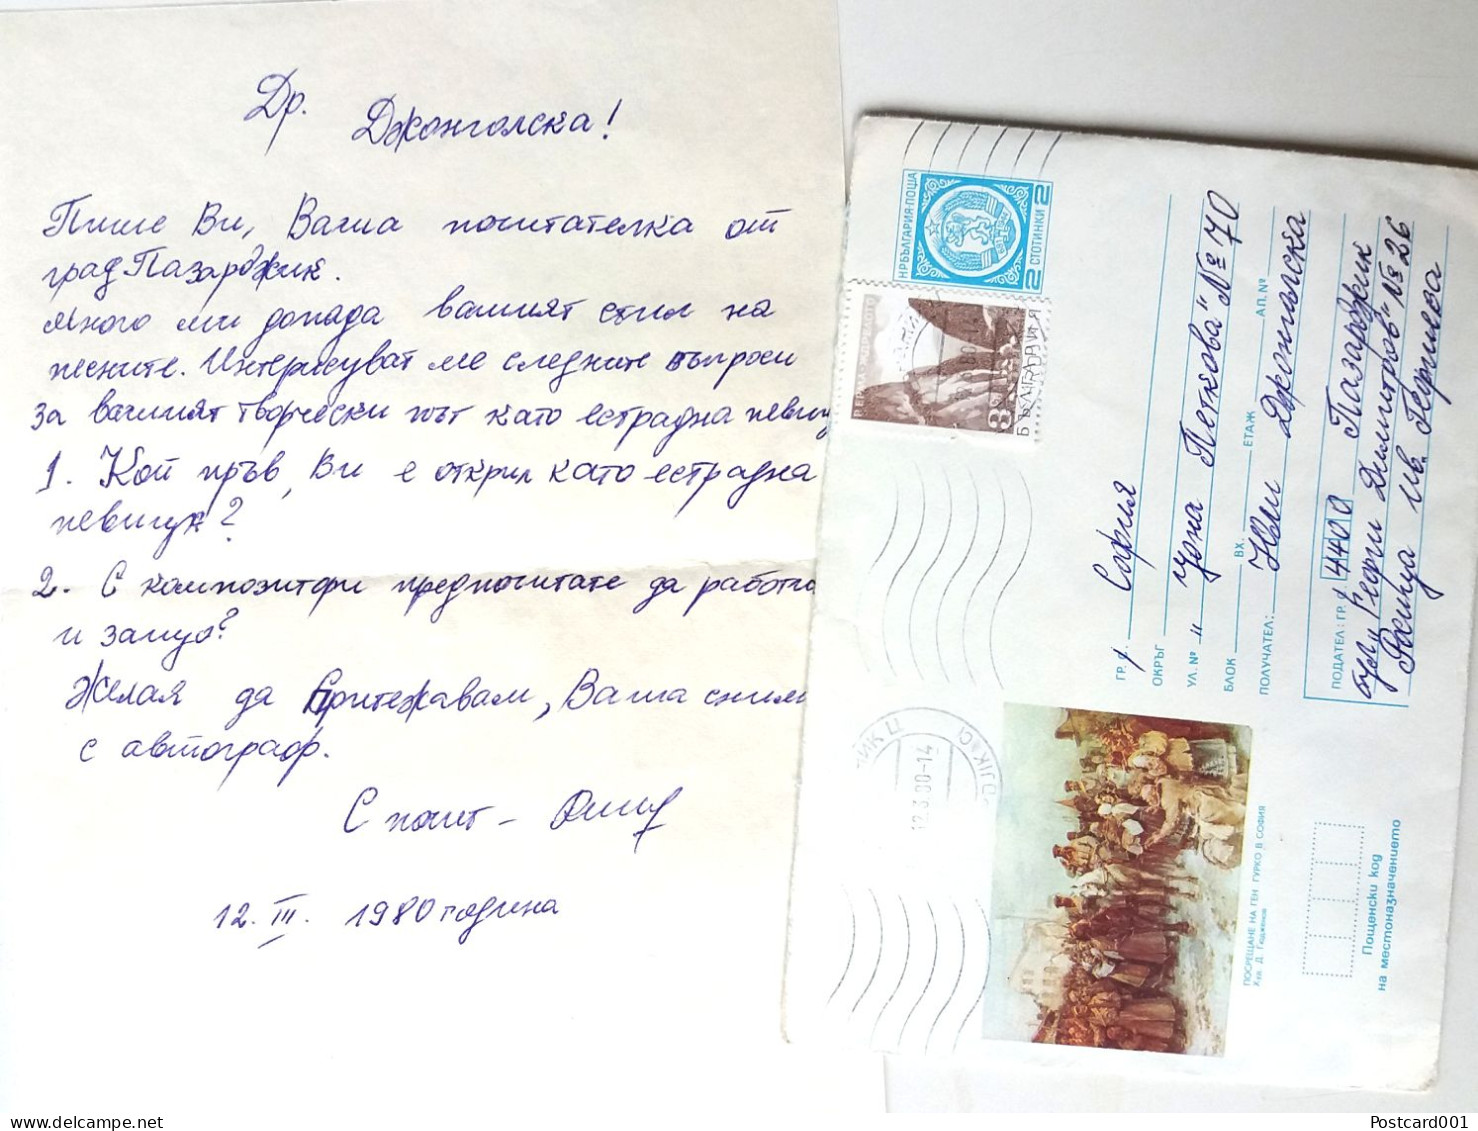 Др. Джонголска!
Пише Ви, Ваша почитателка от
град Пазарджик.
Много ми допада вашият стил на
песните. Интересуват ме следните въпроси
за вашият творчески път като естрадна певица
1. Кой пръв, Ви е открил като естрадна
певица?
2. С композитори предпочитате да работи
и защо?
Желая да притежавам, Ваша сним
с автограф.
С почит -
12. III. 1980 година
НР БЪЛГАРИЯ·ПОЩА
2 СТОТИНКИ 2
БЪЛГАРИЯ
12.3.80-14
ГР. София
ОКРЪГ
УЛ. № "Цона Петкова" № 70
БЛОК ВХ. ЕТАЖ АП. №
ПОЛУЧАТЕЛ: Нели Джонголска
ПОДАТЕЛ: ГР. 4400 Пазарджик
бул. "Георги Димитров" № 26
Росица Ив.
ПОСРЕЩАНЕ НА ГЕН ГУРКО В СОФИЯ
Худ. Д. Гюдженов
Пощенски код
на местоназначението
Postcard001